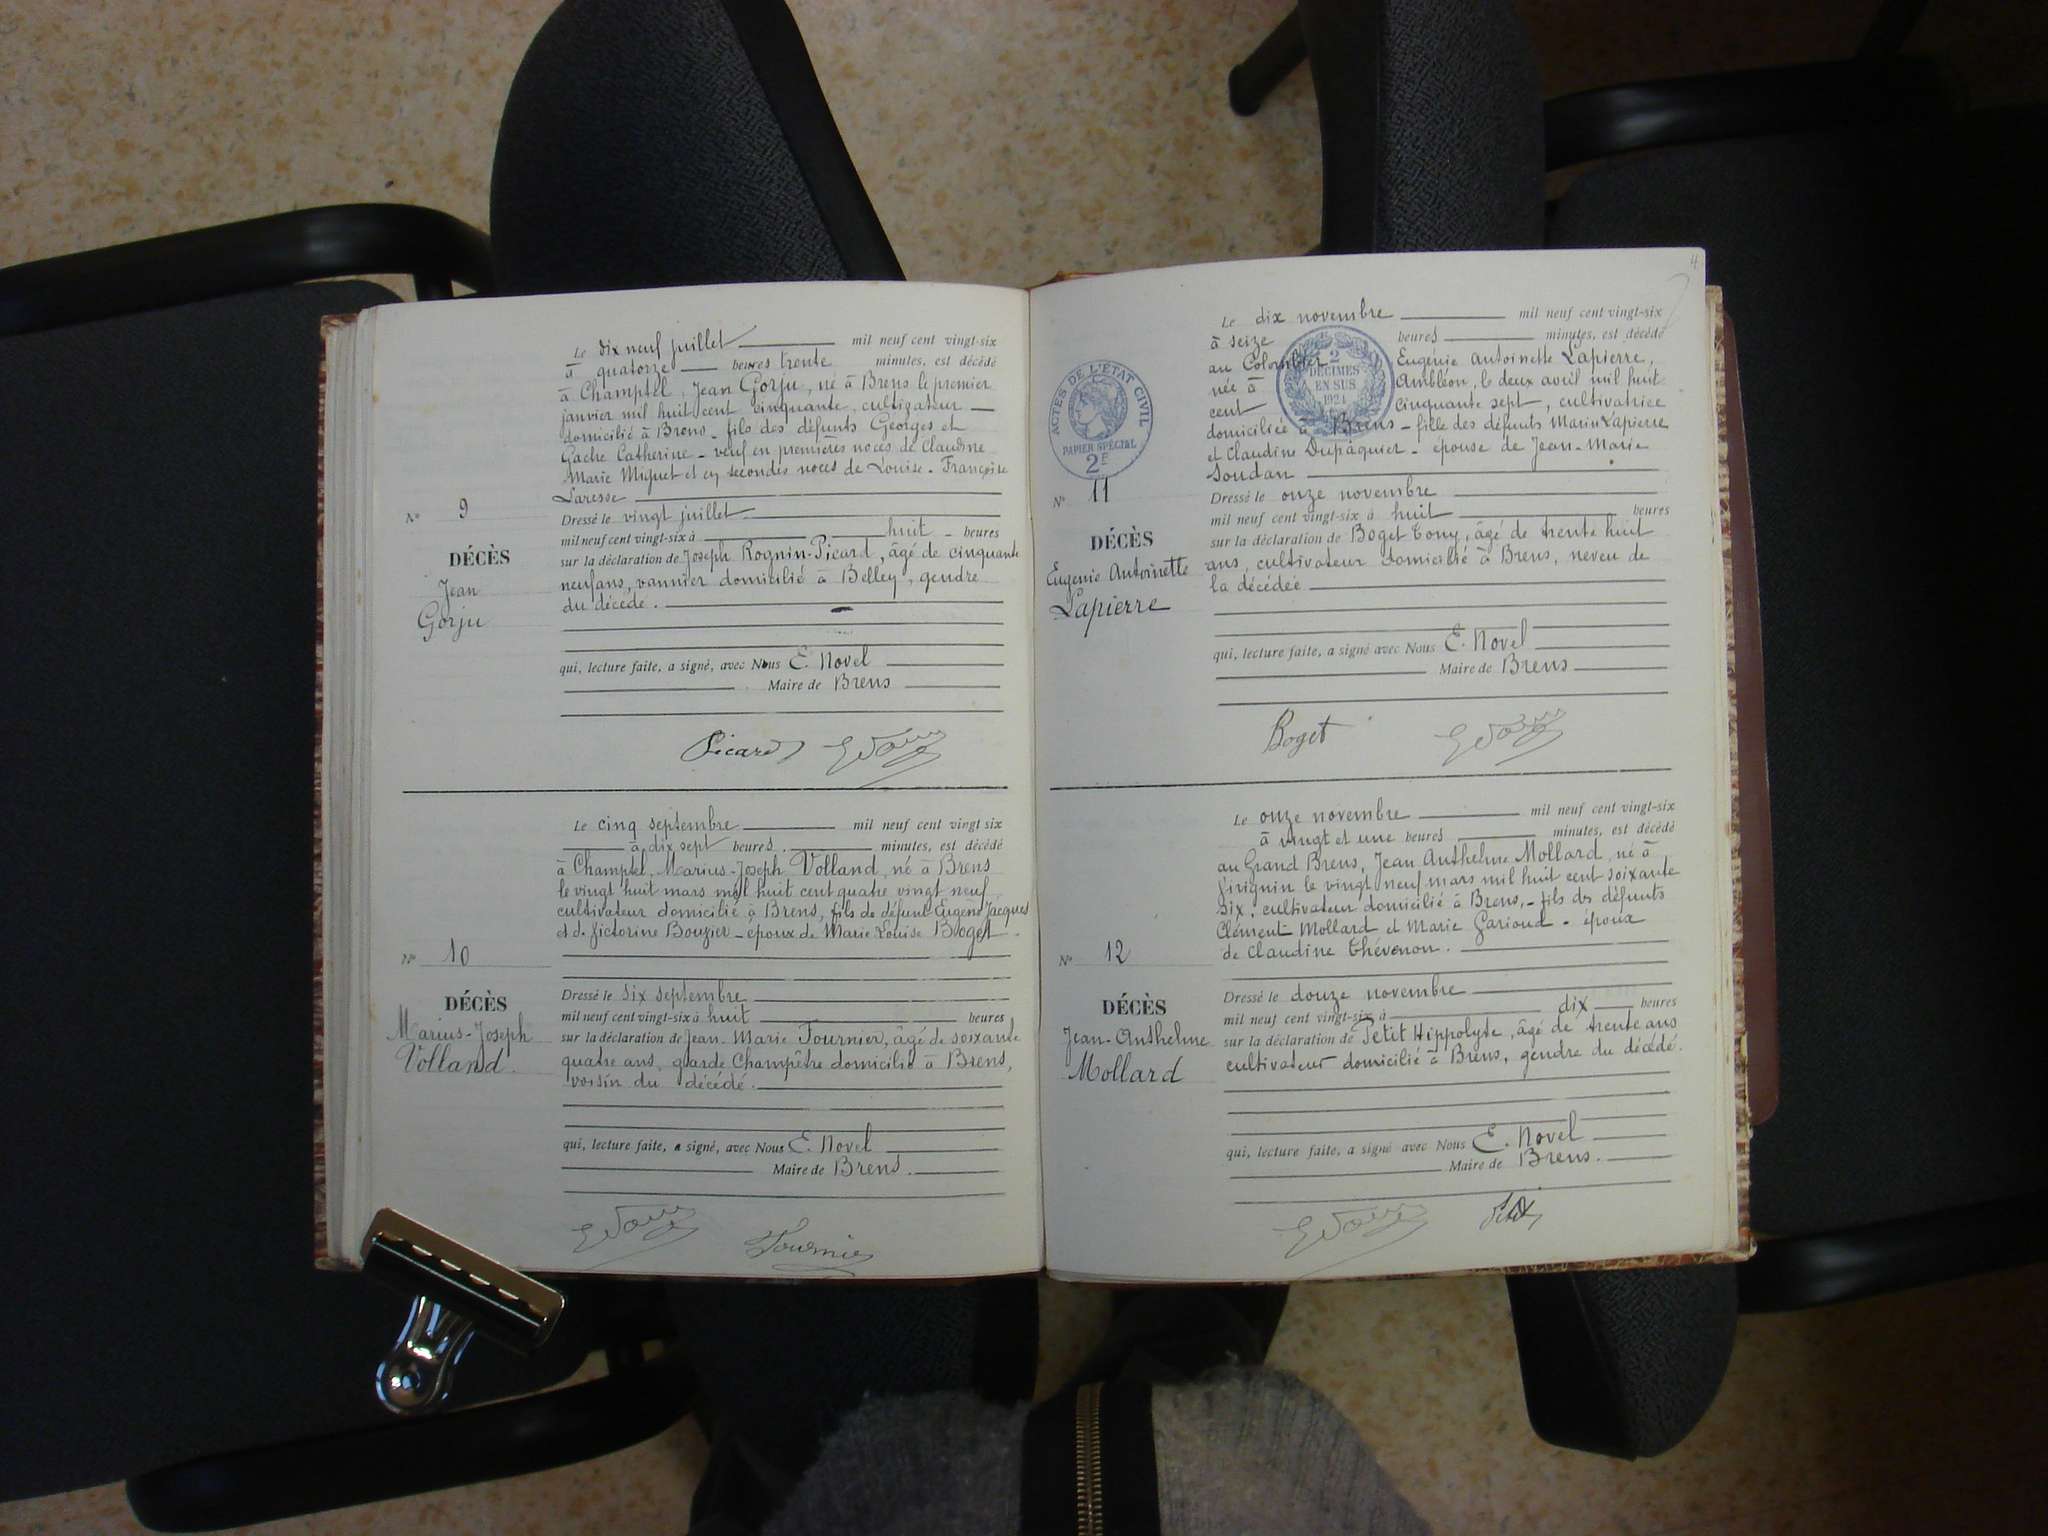 Le dix neuf juillet mil neuf cent vingt-six
à quatorze heures trente minutes, est décédé
à Champtel, Jean Gorju, né à Brens le premier
janvier mil huit cent cinquante, cultivateur
domicilié à Brens - fils des défunts Georges et
Gache Catherine - veuf en premières noces de Claudine
Marie Miguet et en secondes noces de Louise-Françoise
Laresse
N° 9
Dressé le vingt juillet
mil neuf cent vingt-six à huit heures
DÉCÈS
sur la déclaration de Joseph Rognin-Picard, âgé de cinquante
Jean
neuf ans, vannier domicilié à Belley, gendre
Gorju
du décédé.
qui, lecture faite, a signé, avec Nous E. Novel
Maire de Brens
Picard
Le cinq septembre mil neuf cent vingt six
à dix sept heures minutes, est décédé
à Champtel, Marius-Joseph Volland, né à Brens
le vingt huit mars mil huit cent quatre vingt neuf
cultivateur domicilié à Brens, fils de défunt Eugène Jacques
et de Victorine Bouzier - époux de Marie Louise Boget
N° 10
Dressé le six septembre
DÉCÈS
mil neuf cent vingt-six à huit heures
Marius-Joseph
sur la déclaration de Jean-Marie Fournier, âgé de soixante
Volland.
quatre ans, garde Champêtre domicilié à Brens,
voisin du décédé.
qui, lecture faite, a signé, avec Nous E. Novel
Maire de Brens.
Fournier
4
Le dix novembre mil neuf cent vingt-six
à seize heures minutes, est décédé
au Colombier Eugénie Antoinette Lapierre,
née à Ambléon, le deux avril mil huit
cent cinquante sept, cultivatrice
domiciliée à Brens - fille des défunts Marin Lapierre
et Claudine Dupâquier - épouse de Jean-Marie
Soudan
2
DÉCIMES
EN SUS
1921
ACTES DE L'ÉTAT CIVIL
PAPIER SPÉCIAL
2F
N° 11
Dressé le onze novembre
mil neuf cent vingt-six à huit heures
DÉCÈS
sur la déclaration de Boget Tony, âgé de trente huit
Eugénie Antoinette
ans, cultivateur domicilié à Brens, neveu de
Lapierre
la décédée
qui, lecture faite, a signé avec Nous E. Novel
Maire de Brens
Boget
Le onze novembre mil neuf cent vingt-six
à vingt et une heures minutes, est décédé
au Grand Brens, Jean Anthelme Mollard, né à
Virignin le vingt neuf mars mil huit cent soixante
six, cultivateur domicilié à Brens, - fils des défunts
Clément Mollard et Marie Garioud - époux
de Claudine Thévenon.
N° 12
Dressé le douze novembre
DÉCÈS
mil neuf cent vingt-six à dix heures
Jean-Anthelme
sur la déclaration de Petit Hippolyte, âgé de trente ans
Mollard
cultivateur domicilié à Brens, gendre du décédé.
qui, lecture faite, a signé avec Nous E. Novel
Maire de Brens.
Petit